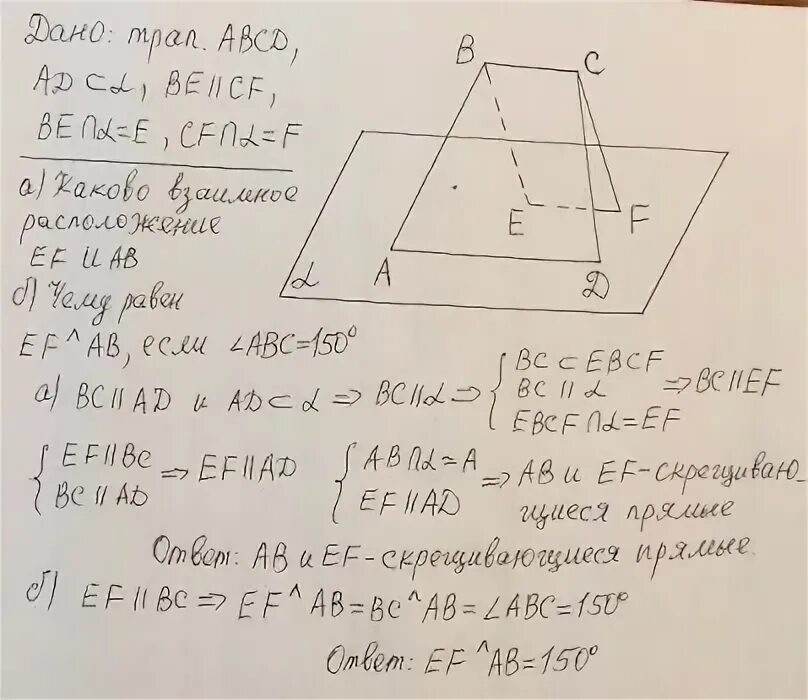 Дано: трап. ABCD,
AD ⊂ α, BE ∥ CF,
BE ∩ α = E, CF ∩ α = F
а) Каково взаимное
расположение
EF и AB
б) Чему равен
EF ^ AB, если ∠ABC = 150°
B
C
E
F
A
D
α
а) BC ∥ AD и AD ⊂ α ⇒ BC ∥ α ⇒ { BC ⊂ EBCF
BC ∥ α
EBCF ∩ α = EF
⇒ BC ∥ EF
{ EF ∥ BC
BC ∥ AD
⇒ EF ∥ AD
{ AB ∩ α = A
EF ∥ AD
⇒ AB и EF - скрещиваю-
щиеся прямые
Ответ: AB и EF - скрещивающиеся прямые.
б) EF ∥ BC ⇒ EF ^ AB = BC ^ AB = ∠ABC = 150°
Ответ: EF ^ AB = 150°